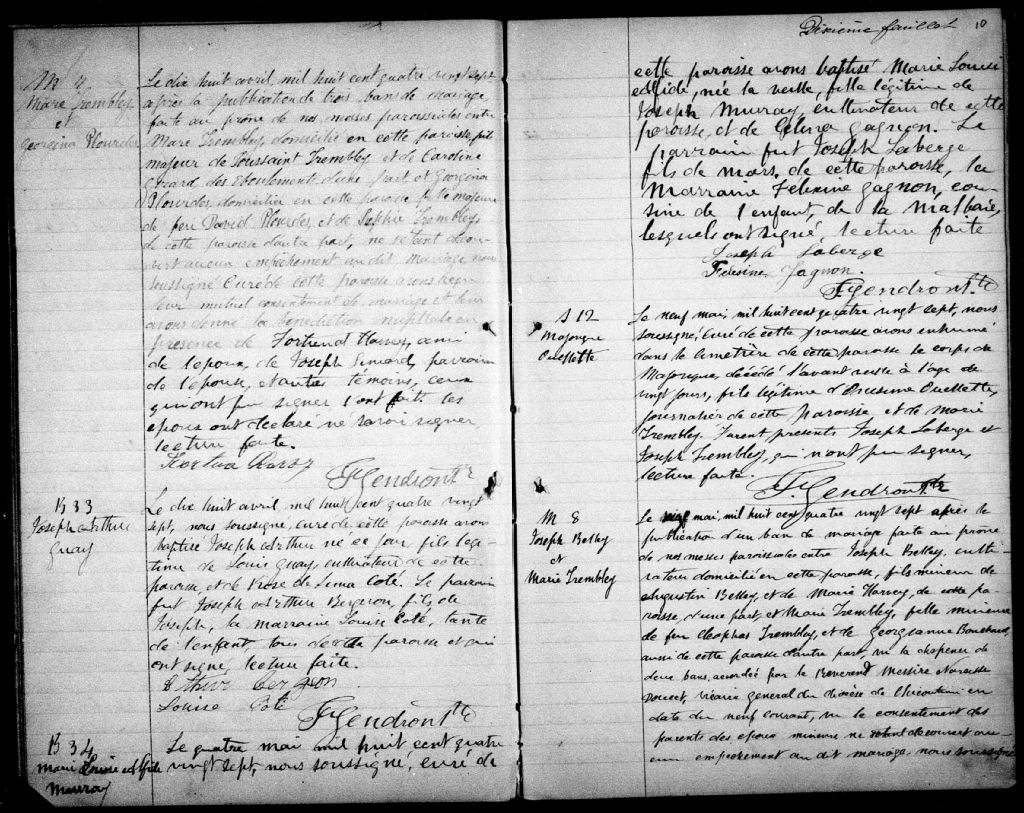 M 7
Marie Trembley
et
Georgina Plourdes
Le dix huit avril mil huit cent quatre vingt sept
après la publication de trois bans de mariage
faite au prône de nos messes paroissiales entre
Marie Trembley, domicilié en cette paroisse, fils
majeur de Toussaint Trembley et de Caroline
des Eboulement d'une part et Georgina
Plourdes, domiciliée en cette paroisse fille majeure
de feu David Plourdes, et de Sophie Trembley,
de cette paroisse d'autre part, ne s'étant décou-
vert aucun empêchement au dit mariage, nous
soussigné Curé de cette paroisse avons reçu
leur mutuel consentement de mariage et leur
avons donné la bénédiction nuptiale en
présence de ami
de l'époux, de Joseph Simard, parrain
de l'épouse, et autres témoins, ceux
qui ont pu signer l'ont fait les
époux ont déclaré ne savoir signer,
lecture faite.
F. Gendron Ptre
B 33
Joseph Arthur
Guay
Le dix huit avril mil huit cent quatre vingt
sept, nous soussigné, curé de cette paroisse avons
baptisé Joseph Arthur né ce jour fils légi-
time de Louis Guay, cultivateur de cette
paroisse et de Rose de Lima Coté. Le parrain
fut Joseph Arthur Bergeron, fils de
Joseph, la marraine Louise Coté, tante
de l'enfant, tous de cette paroisse et qui
ont signé, lecture faite.
Louise Coté
F. Gendron Ptre
B 34
Marie Louise
Murray
Le quatre mai mil huit cent quatre
vingt sept, nous soussigné, curé de
Dixième feuillet 10
cette paroisse avons baptisé Marie Louise
née la veille, fille légitime de
Joseph Murray, cultivateur de cette
paroisse, et de Gagnon. Le
parrain fut Joseph Laberge
fils de Mars. de cette paroisse, la
Marraine Félixine Gagnon, cou-
sine de l'enfant, de la Malbaie,
lesquels ont signé, lecture faite
Joseph Laberge
Gagnon.
F. Gendron Ptre
S 12
Majorique
Ouellette
Le neuf mai, mil huit cent quatre vingt sept, nous
soussigné, curé de cette paroisse avons enhumé
dans le cimetière de cette paroisse le corps de
Majorique, décédé l'avant veille à l'age de
vingt jours, fils légitime d'Onésime Ouellette,
journalier de cette paroisse et de Marie
Trembley. Furent présents Joseph Laberge et
Joseph Trembley, qui n'ont pu signer,
lecture faite.
F. Gendron Ptre
M 8
Joseph Belley
et
Marie Trembley
Le mai, mil huit cent quatre vingt sept après la
publication d'un ban de mariage faite au prône
de nos messes paroissiales entre Joseph Belley, culti-
vateur domicilié en cette paroisse, fils mineur de
Augustin Belley, et de Marie Harvey, de cette pa-
roisse, d'une part, et Marie Trembley, fille mineure
de feu Cleophas Trembley, et de Georgianne Bouchard,
aussi de cette paroisse d'autre part, vu la dispense de
deux bans, accordée par le Révérend Messire Narcisse
Doucet, vicaire général du diocèse de Chicoutimi en
date du neuf courant, vu le consentement des
parents des époux mineurs ne s'étant découvert au-
cun empêchement au dit mariage, nous soussigné